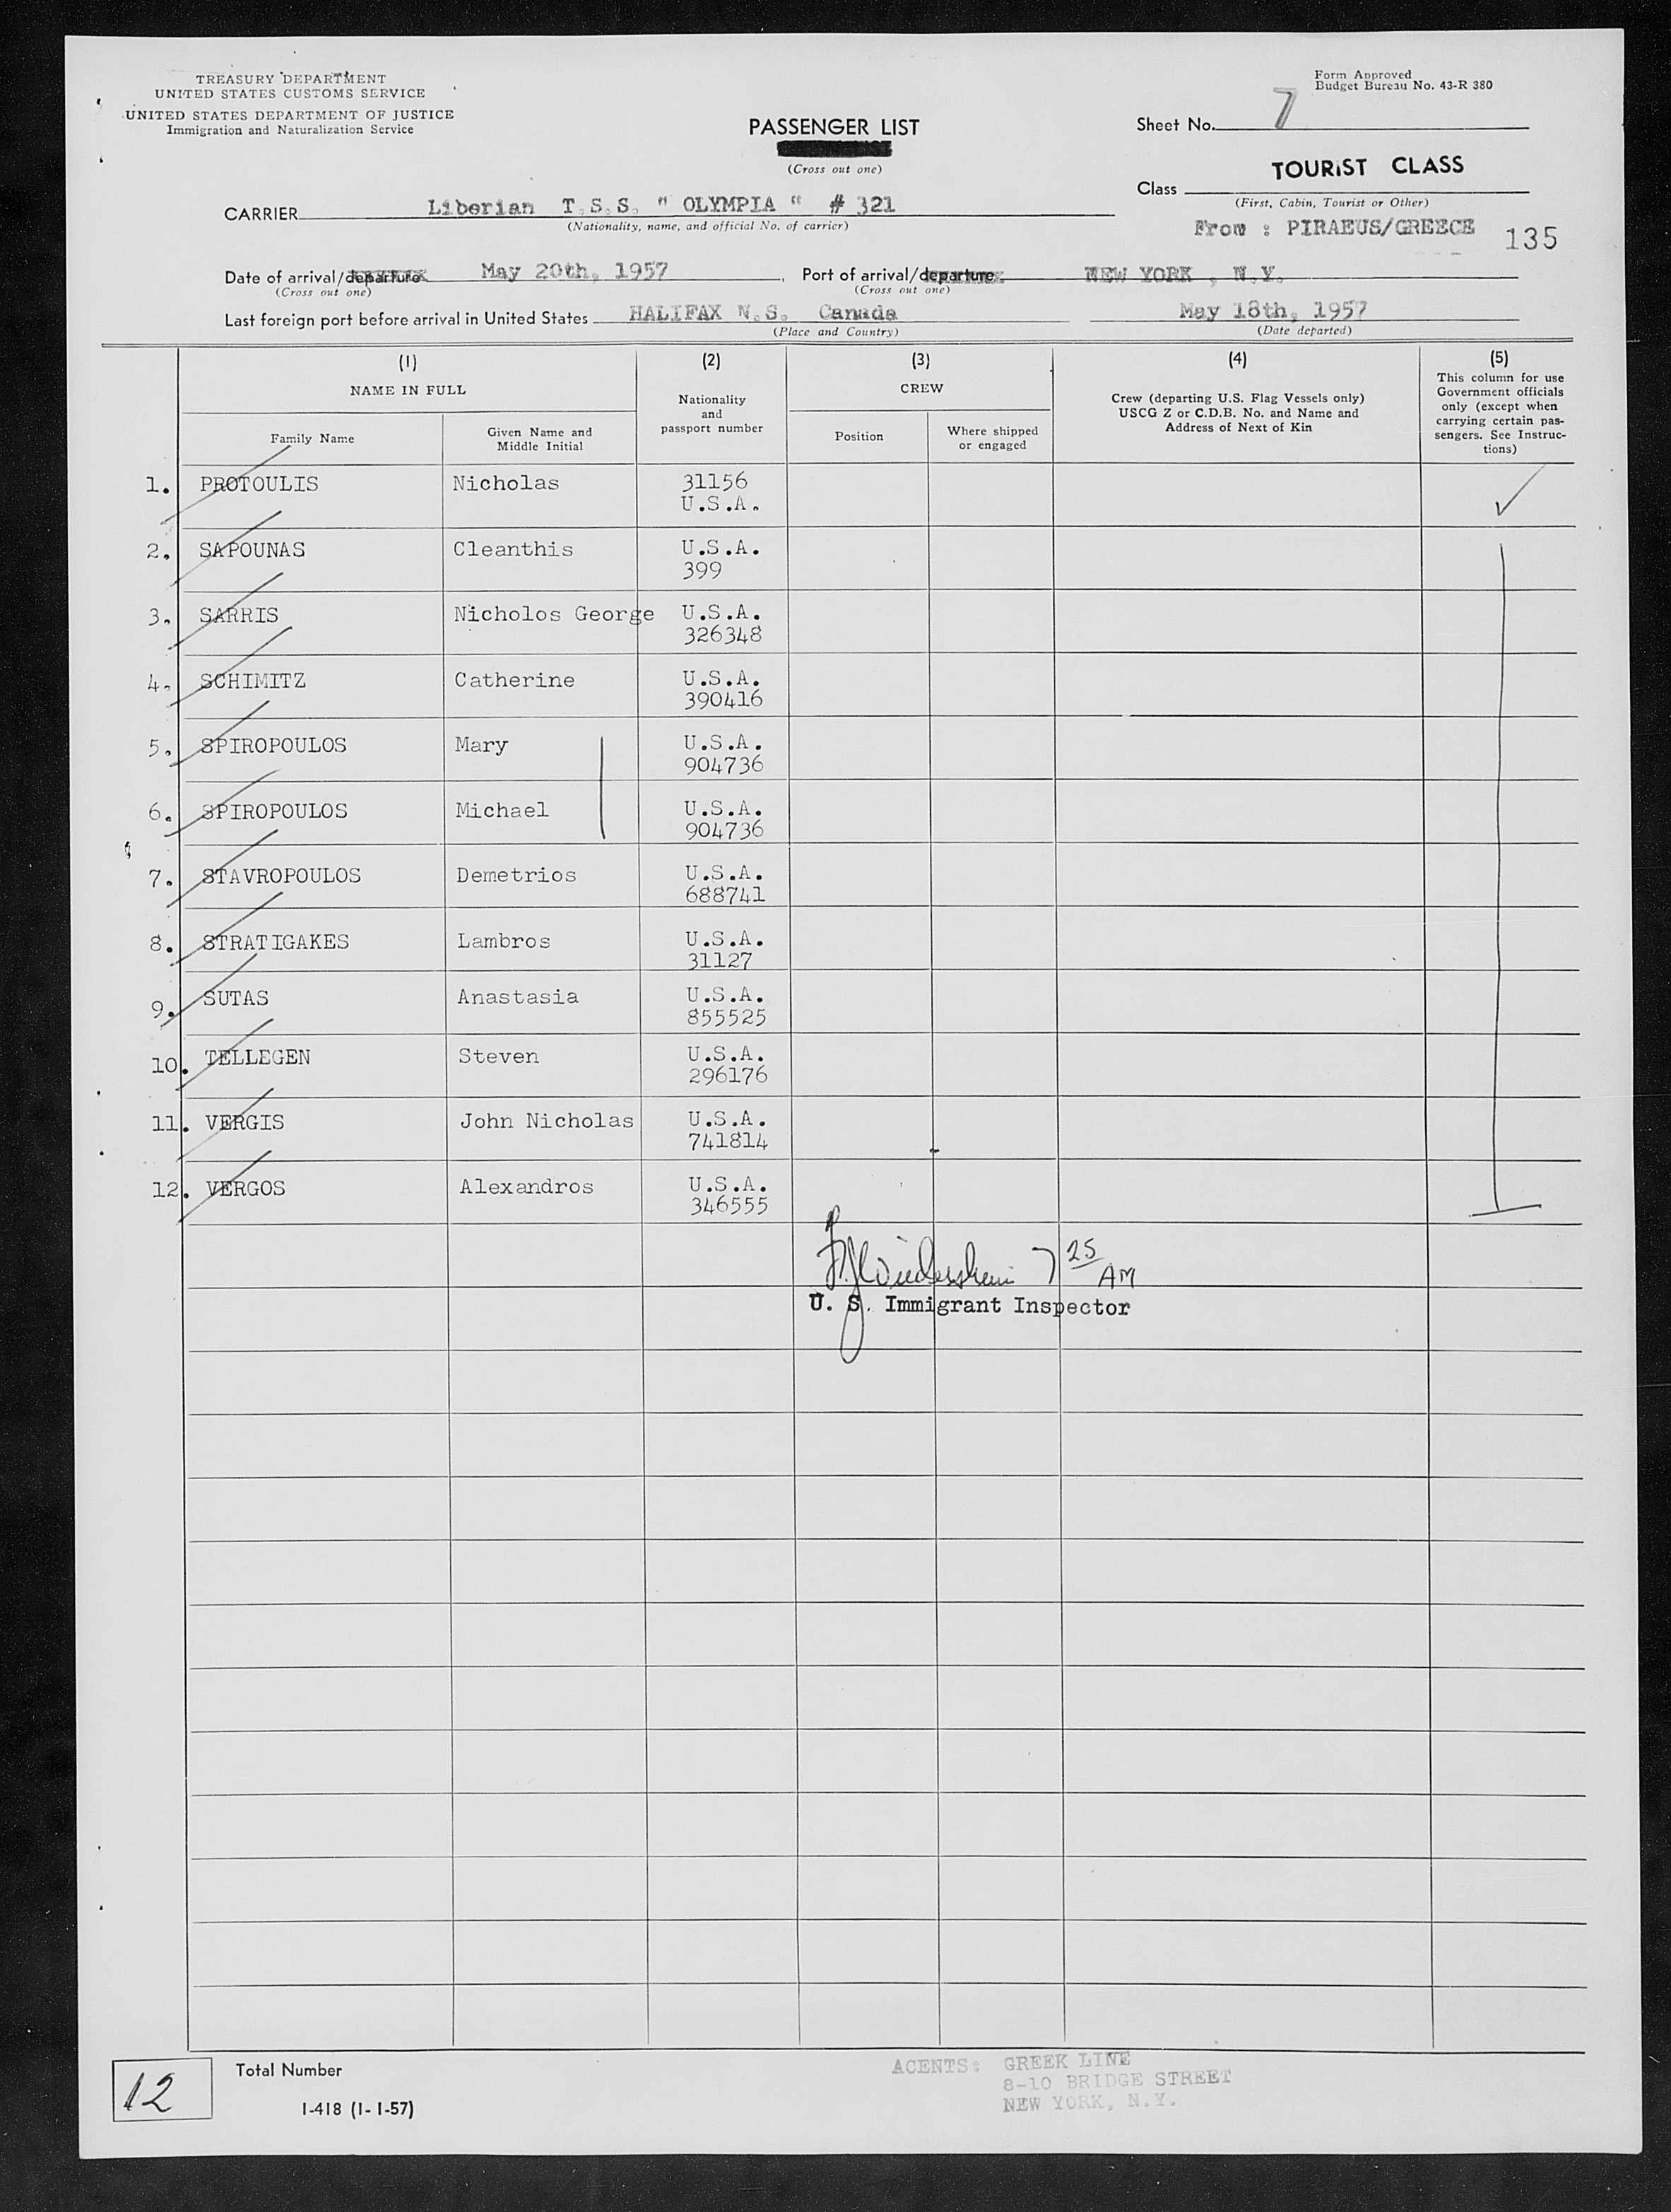 TREASURY DEPARTMENT
UNITED STATES CUSTOMS SERVICE
UNITED STATES DEPARTMENT OF JUSTICE
Immigration and Naturalization Service
Form Approved
Budget Bureau No. 43-R 380
PASSENGER LIST
(Cross out one)
Sheet No. 7
TOURIST CLASS
Class
(First, Cabin, Tourist or Other)
CARRIER Liberian T.S.S. " OLYMPIA " # 321
(Nationality, name, and official No. of carrier)
From : PIRAEUS/GREECE 135
Date of arrival/departure May 20th, 1957 Port of arrival/departure NEW YORK , N.Y.
(Cross out one) (Cross out one)
Last foreign port before arrival in United States HALIFAX N.S. Canada May 18th, 1957
(Place and Country) (Date departed)
(1) (2) (3) (4) (5)
NAME IN FULL
Family Name
Given Name and
Middle Initial
Nationality
and
passport number
CREW
Position
Where shipped
or engaged
Crew (departing U.S. Flag Vessels only)
USCG Z or C.D.B. No. and Name and
Address of Next of Kin
This column for use
Government officials
only (except when
carrying certain pas-
sengers. See Instruc-
tions)
1. PROTOULIS Nicholas 31156
U.S.A.
2. SAPOUNAS Cleanthis U.S.A.
399
3. SARRIS Nicholos George U.S.A.
326348
4. SCHIMITZ Catherine U.S.A.
390416
5. SPIROPOULOS Mary U.S.A.
904736
6. SPIROPOULOS Michael U.S.A.
904736
7. STAVROPOULOS Demetrios U.S.A.
688741
8. STRATIGAKES Lambros U.S.A.
31127
9. SUTAS Anastasia U.S.A.
855525
10. TELLEGEN Steven U.S.A.
296176
11. VERGIS John Nicholas U.S.A.
741814
12. VERGOS Alexandros U.S.A.
346555
7 25 AM
U. S. Immigrant Inspector
12
Total Number
I-418 (1-1-57)
AGENTS: GREEK LINE
8-10 BRIDGE STREET
NEW YORK, N.Y.